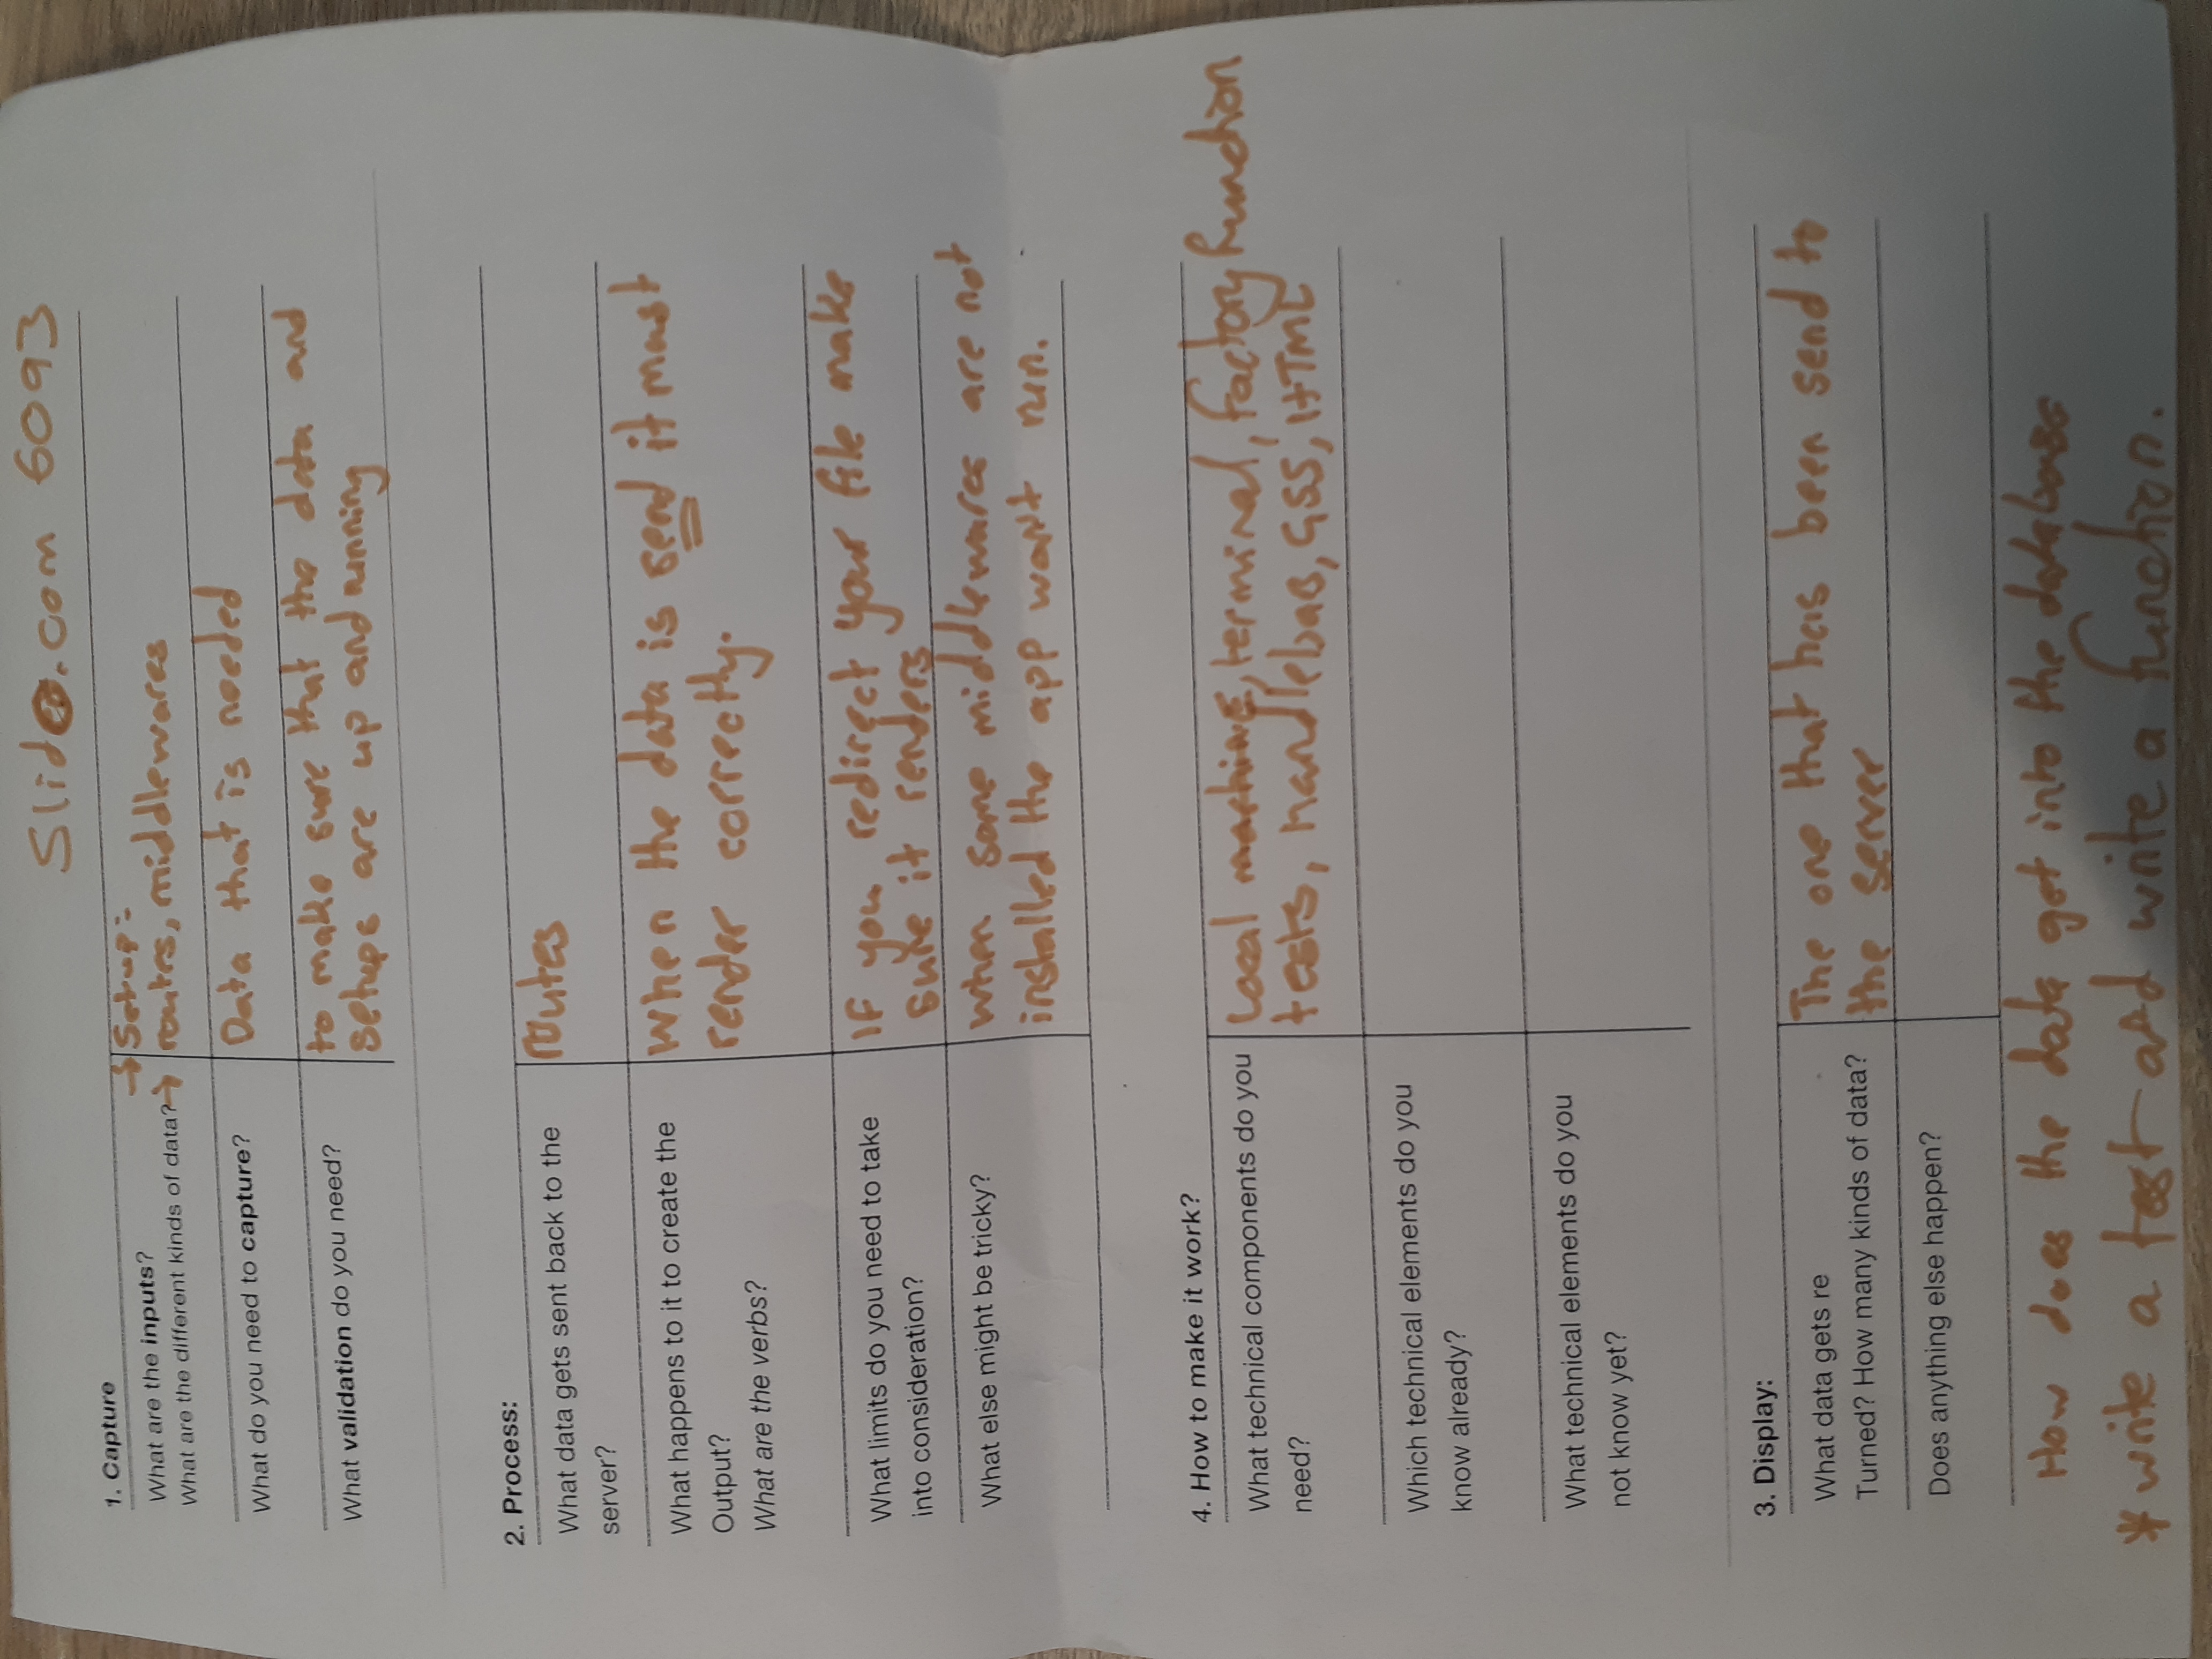 Slido.com 6093
1. Capture
What are the inputs?
What are the different kinds of data?
→ Setup:
→ routes, middlewares
What do you need to capture?
Data that is needed
What validation do you need?
to make sure that the data and
setups are up and running
2. Process:
What data gets sent back to the
server?
routes
What happens to it to create the
Output?
What are the verbs?
When the data is send it must
render correctly.
What limits do you need to take
into consideration?
If you redirect your file make
sure it renders
What else might be tricky?
when some middlewares are not
installed the app won't run.
4. How to make it work?
What technical components do you
need?
Local machine, terminal, factory function
tests, handlebars, CSS, HTML
Which technical elements do you
know already?
What technical elements do you
not know yet?
3. Display:
What data gets re
Turned? How many kinds of data?
The one that has been send to
the server
Does anything else happen?
How does the data get into the database
* write a test and write a function.